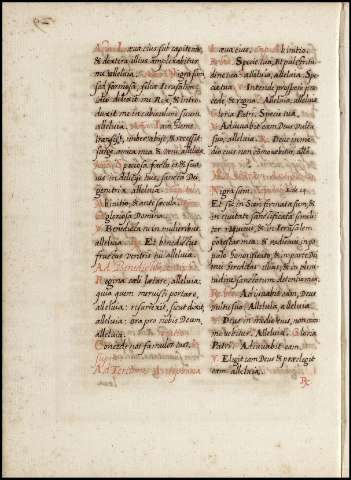 Læva ejus sub capite meo,
& dextera illius amplexabitur
me alleluia. Nigra sum
sed formosa, filiæ Jerusalem
ideo dilexit me Rex, & intro-
duxit me in cubiculum suum
alleluia. Jam hiems
transiit, imber abiit & recessit
surge amica mea & veni alleluia
Speciosa facta es & sua-
vis in deliciis tuis, sancta Dei
genitrix alleluia
Ab initio, & ante sæcula.
O gloriosa Domina.
V. Benedicta tu in mulieribus
alleluia. Et benedictus
fructus ventris tui alleluia.
Ad Benedictus
Regina cæli lætare, alleluia:
quia quem meruisti portare,
alleluia: resurrexit, sicut dixit,
alleluia: ora pro nobis Deum,
alleluia.
Concede nos famulos tuos,
supra
Ad Tertiam
Læva ejus. Ab initio.
Specie tua, & pulchritu-
dine tua alleluia, alleluia. Spe-
cie tua V. Intende prospere pro-
cede & regna. Alleluia, alleluia
Gloria Patri, Specie tua
V. Adjuvabit eam Deus vultu
suo, alleluia. R. Deus in me-
dio ejus non commovebitur, allã.
Nigra sum.
Et sic in Sion firmata sum, &
in civitate sanctificata simili-
ter requievi, & in Jerusalem
potestas mea. & radicavi in po-
pulo honorificato, & in parte Dei
mei hereditas illius, & in pleni-
tudine sanctorum detentio mea.
Adjuvabit eam, Deus
vultu suo, Alleluia, alleluia.
V. Deus in medio ejus, non com-
movebitur. Alleluia. Gloria
Patri. Adjuvabit eam.
V. Elegit eam Deus & præelegit
eam alleluia.
R.